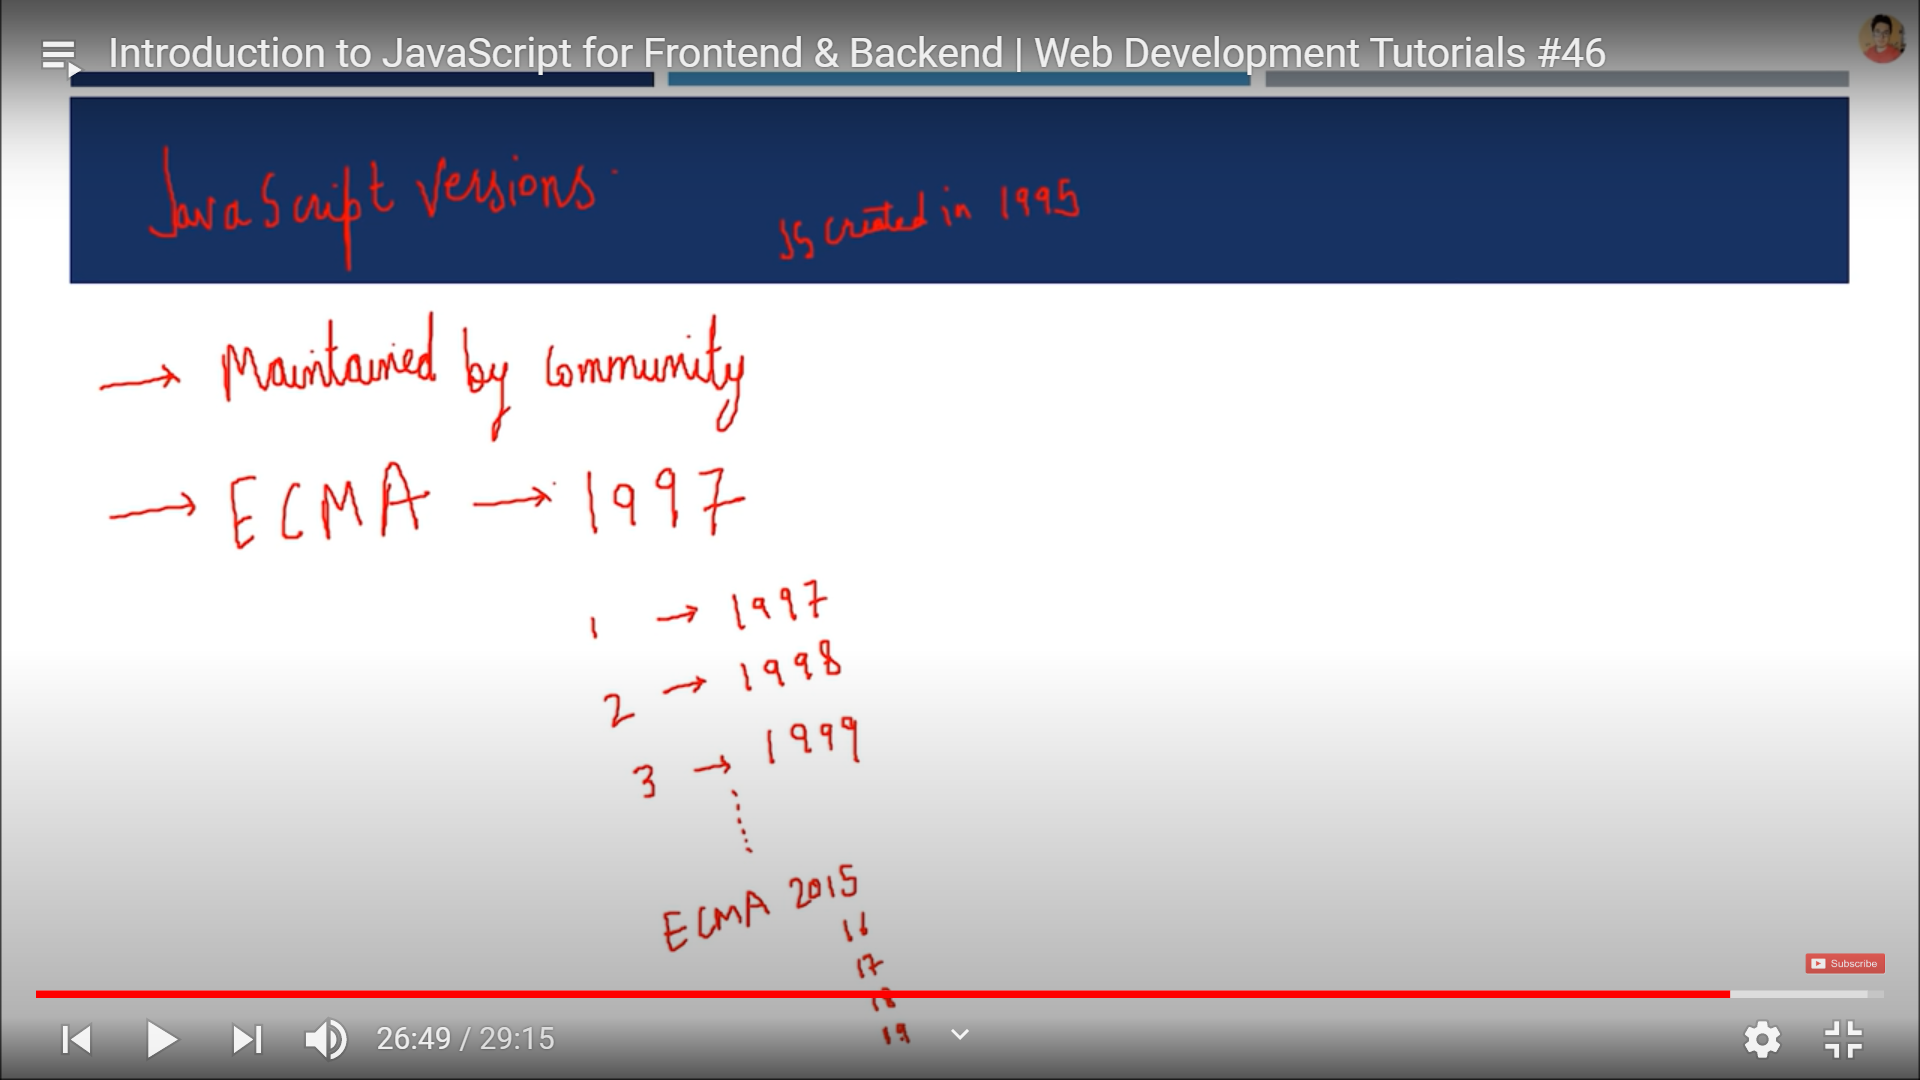 Introduction to JavaScript for Frontend & Backend | Web Development Tutorials #46
JavaScript Versions
JS created in 1995
→ Maintained by community
→ ECMA → 1997
1 → 1997
2 → 1998
3 → 1999
ECMA 2015
16
17
18
19
Subscribe
26:49 / 29:15